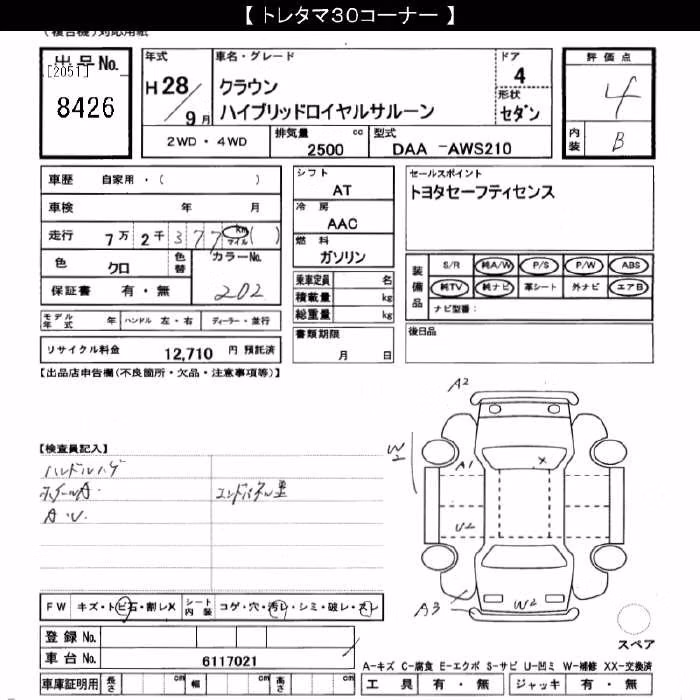 【 トレタマ30コーナー 】
(複合機)対応用紙
出品No.
[2051]
8426
年式
H28/9月
車名・グレード
クラウン
ハイブリッドロイヤルサルーン
ドア
4
形状
セダン
2WD ・ 4WD
排気量 cc
2500
型式
DAA -AWS210
評価点
4
内装
B
車歴 自家用・( )
車検 年 月
走行 7万 2千 3 7 7 km マイル ( )
色 クロ
色替
カラーNo.
202
保証書 有・無
モデル年式 年 ハンドル 左・右 ディーラー・並行
リサイクル料金 12,710 円 預託済
シフト
AT
冷房
AAC
燃料
ガソリン
乗車定員 名
積載量 kg
総重量 kg
書類期限
月 日
セールスポイント
トヨタセーフティセンス
装備品
S/R 純A/W P/S P/W ABS
純TV 純ナビ 革シート 外ナビ エアB
ナビ型番:
後日品
【出品店申告欄(不良箇所・欠品・注意事項等)】
【検査員記入】
ハンドルハゲ
ホイールA.
A.U.
エンドパネル歪
A2
W2
A1
X
U2
A3
W2
スペア
FW キズ・トビ石・割レX
シート内装 コゲ・穴・汚レ・シミ・破レ・スレ
登録 No.
車台 No. 6117021
車庫証明用 長さ cm 幅 cm 高さ cm
A-キズ C-腐食 E-エクボ S-サビ U-凹ミ W-補修 XX-交換済
工具 有・無 ジャッキ 有・無